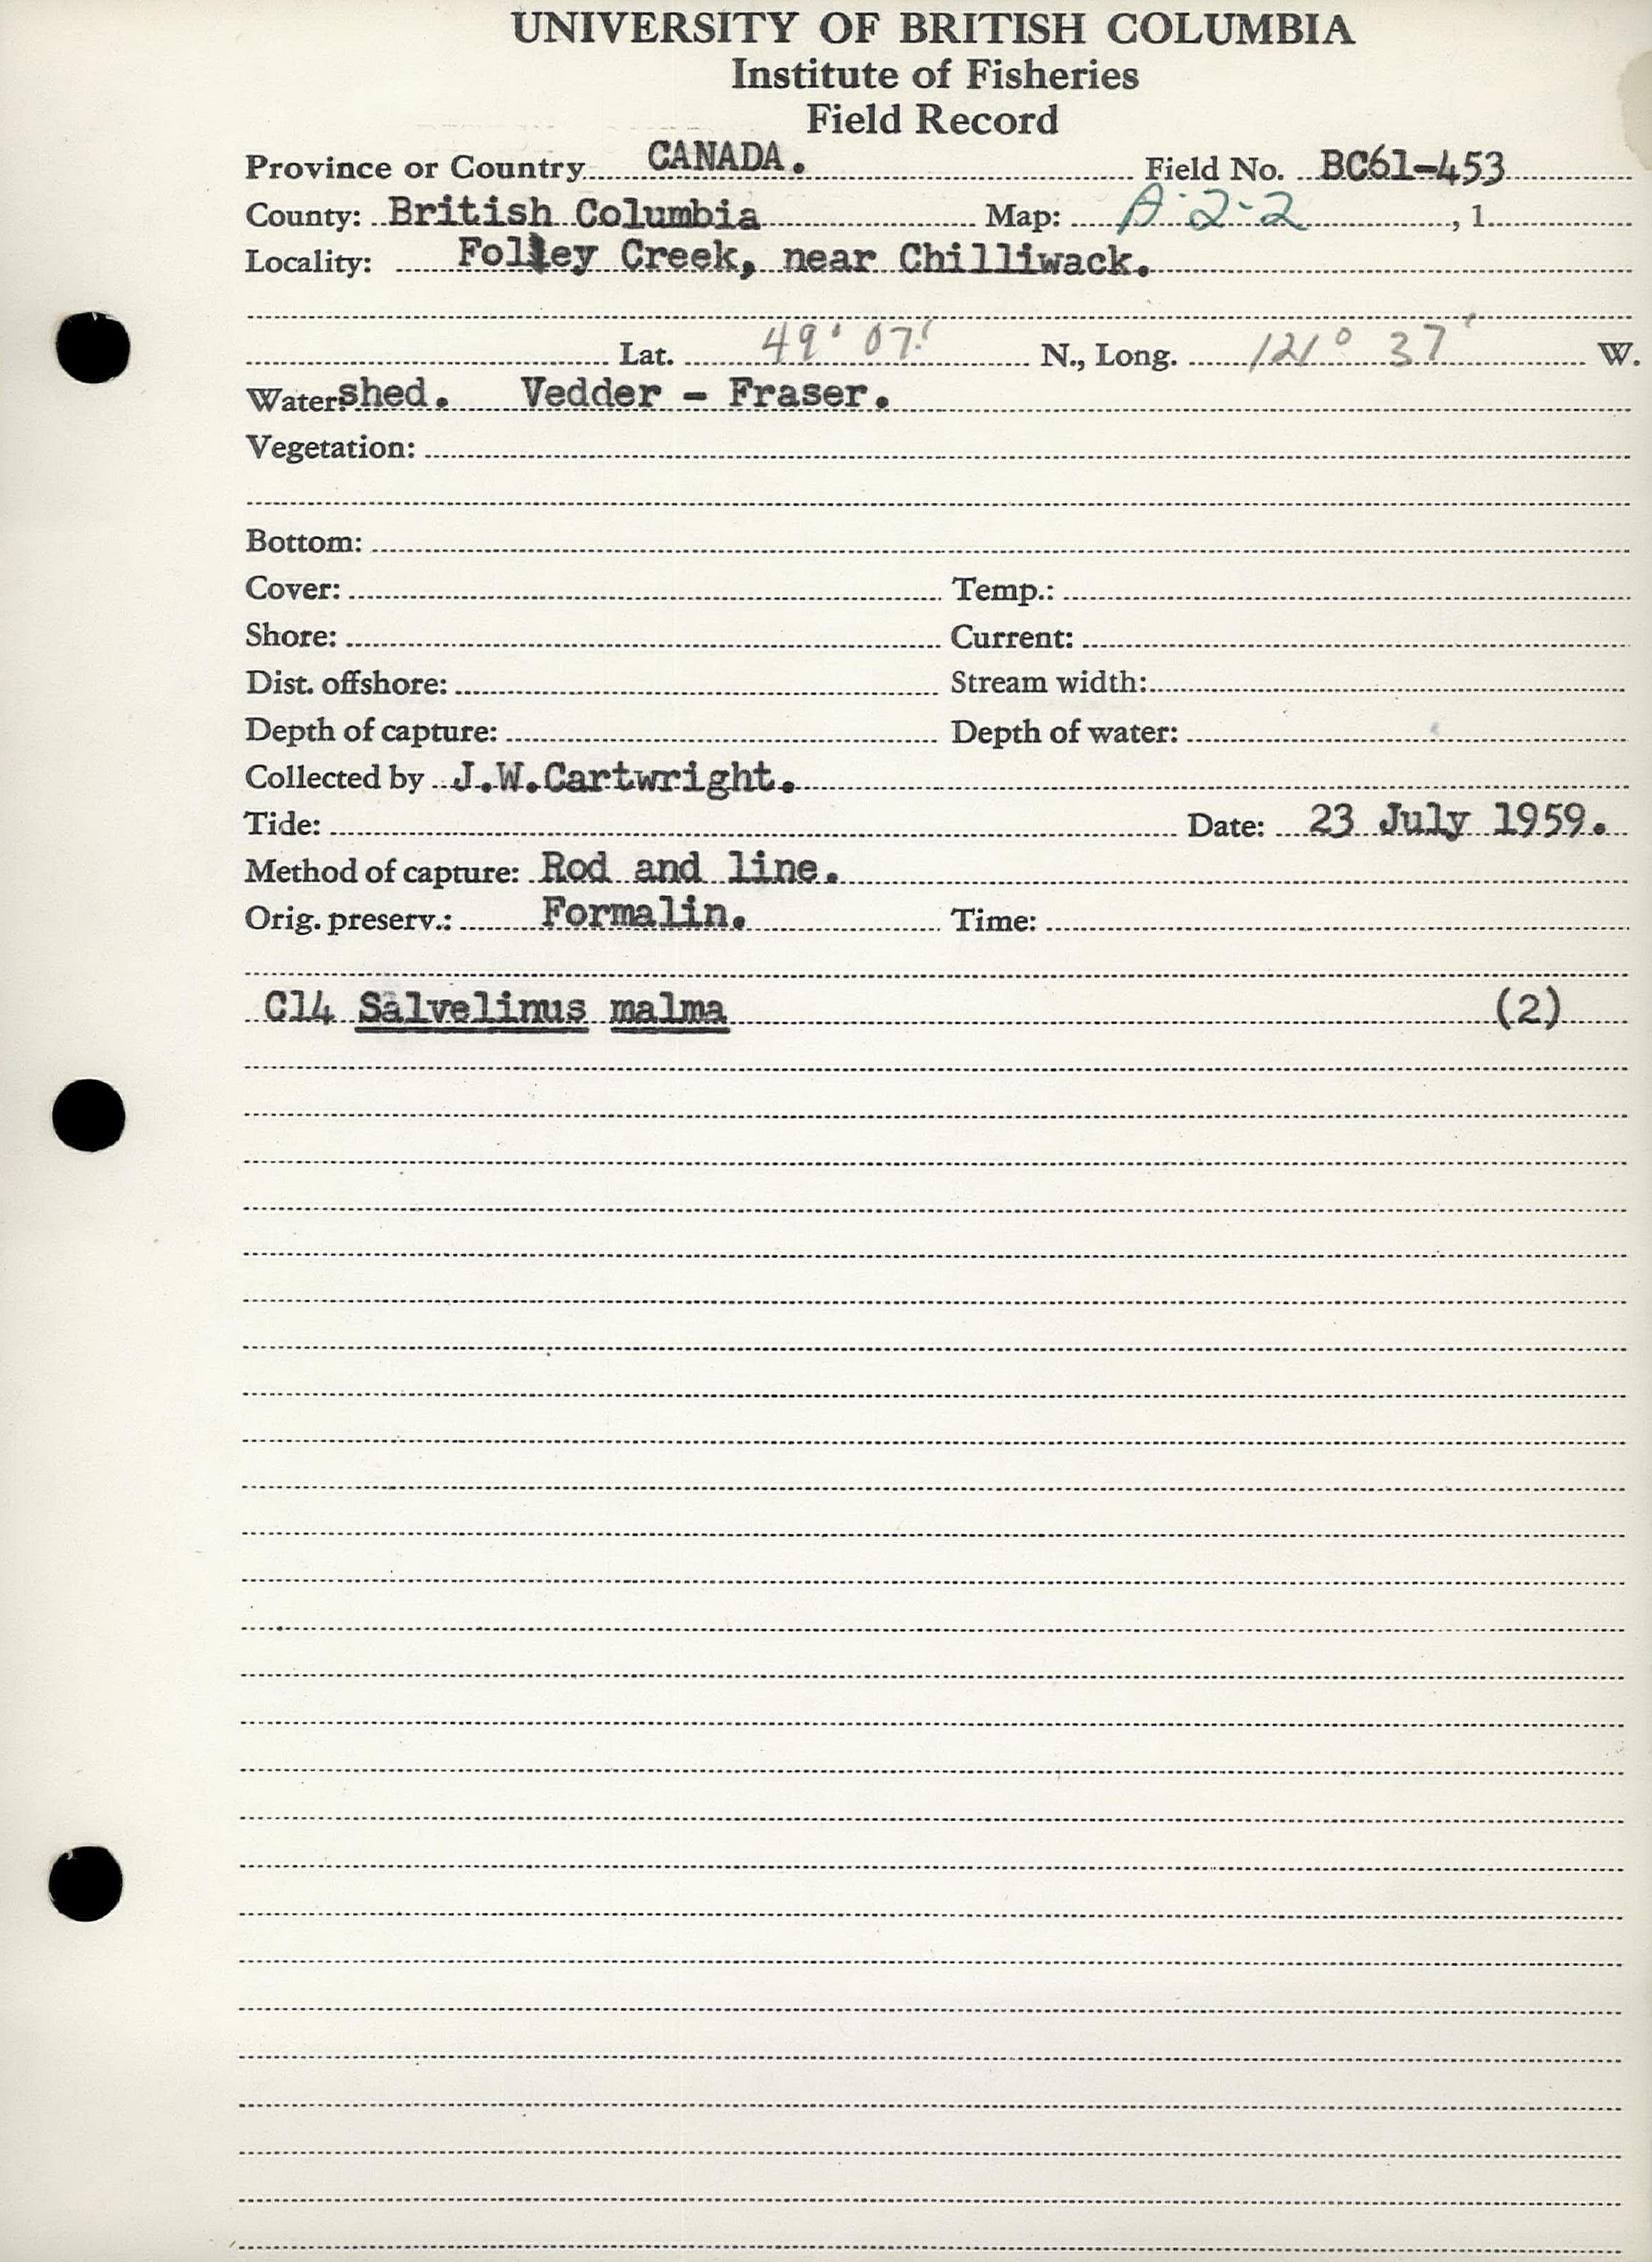 UNIVERSITY OF BRITISH COLUMBIA
Institute of Fisheries
Field Record
Province or Country CANADA. Field No. BC61-453
County: British Columbia Map: A-2-2, 1
Locality: Folley Creek, near Chilliwack.
Lat. 49° 07' N., Long. 121° 37' W.
Watershed. Vedder - Fraser.
Vegetation:
Bottom:
Cover: Temp.:
Shore: Current:
Dist. offshore: Stream width:
Depth of capture: Depth of water:
Collected by J.W.Cartwright.
Tide: Date: 23 July 1959.
Method of capture: Rod and line.
Orig. preserv.: Formalin. Time:
C14 Salvelinus malma (2)